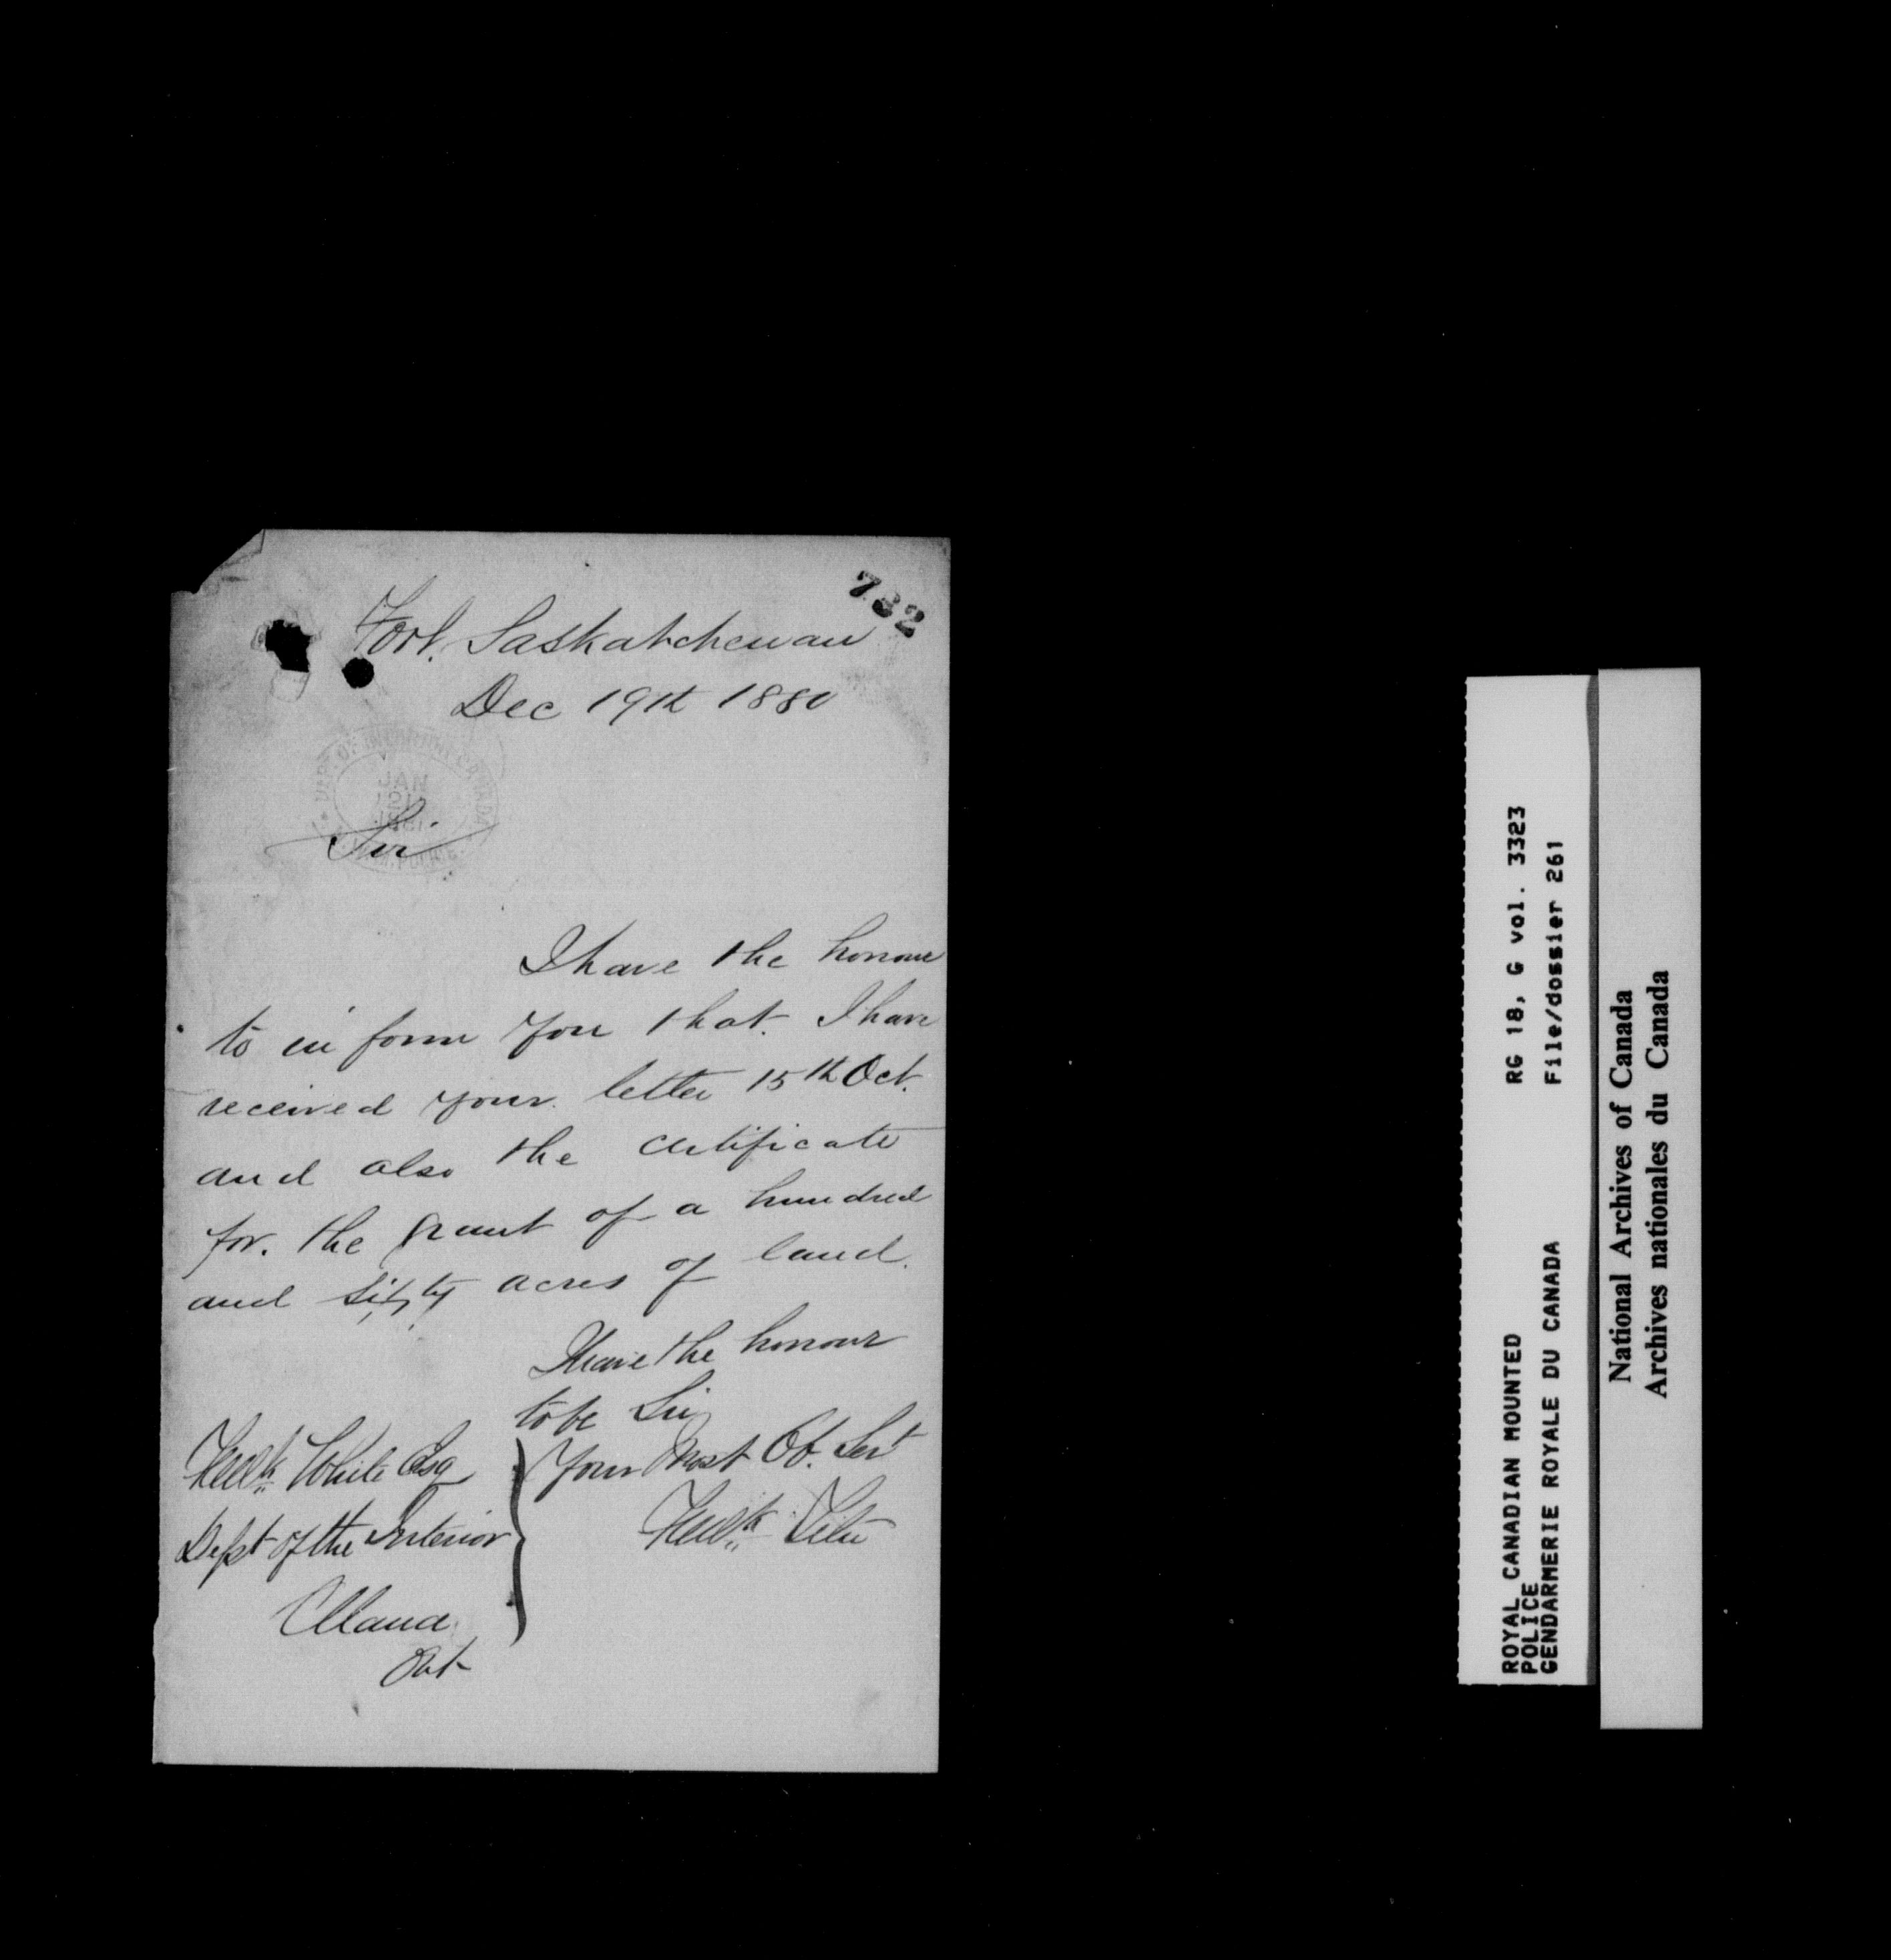 732
Fort. Saskatchewan
Dec 19th 1880
DEPT OF INTERIOR CANADA
JAN
1881
POLICE
Sir
I have the honour
to in form you that. I have
received your letter 15th Oct.
and also the certificate
for. the grant of a hundred
and sixty acres of land.
I have the honour
to be Sir
Your Most Ob. Servt
Fredk
Fredk White Esq
Dept of the Interior
Ottawa
Ont
ROYAL CANADIAN MOUNTED
POLICE
GENDARMERIE ROYALE DU CANADA
RG 18, G vol. 3323
File/dossier 261
National Archives of Canada
Archives nationales du Canada